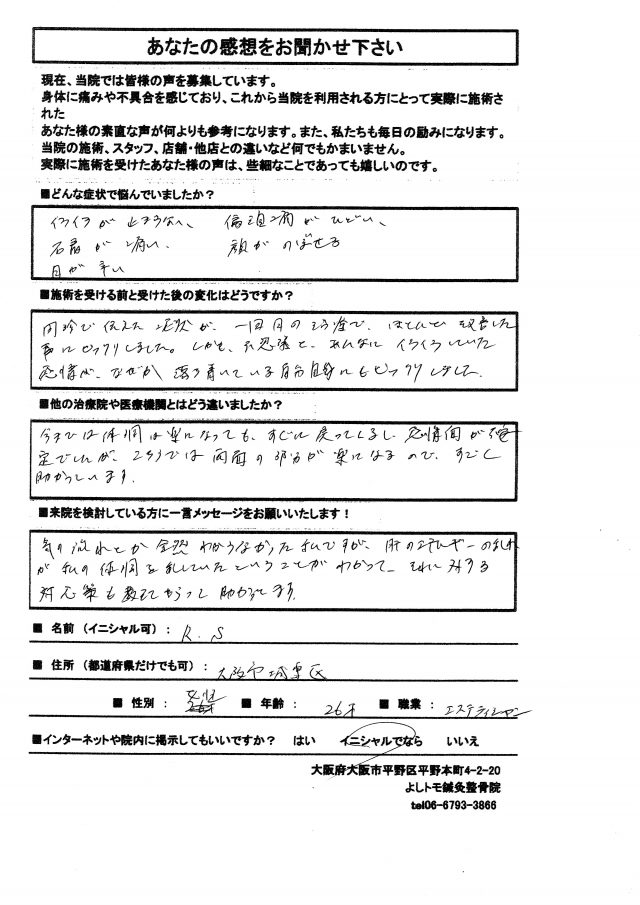 あなたの感想をお聞かせ下さい
現在、当院では皆様の声を募集しています。
身体に痛みや不具合を感じており、これから当院を利用される方にとって実際に施術さ
れた
あなた様の素直な声が何よりも参考になります。また、私たちも毎日の励みになります。
当院の施術、スタッフ、店舗・他店との違いなど何でもかまいません。
実際に施術を受けたあなた様の声は、些細なことであっても嬉しいのです。
■どんな症状で悩んでいましたか？
イライラが止まらない、 偏頭痛がひどい、
が痛い、 顔がのぼせる
目が辛い
■施術を受ける前と受けた後の変化はどうですか？
問診で伝えた症状が、一回目の治療で、ほとんど改善した
事にビックリしました。しかも、不思議と、あんなにイライラしていた
感情が、なぜか落ち着いている自分自身にもビックリしました。
■他の治療院や医療機関とはどう違いましたか？
今までは体調は楽になっても、すぐに戻ってくるし、感情面が不安
定でしたが、こちらでは両面の部分が楽になるので、すごく
助かっています。
■来院を検討している方に一言メッセージをお願いいたします！
気の流れとか全然わからなかった私ですが、肝のエネルギーの乱れ
が私の体調を乱していたということがわかって、それに対する
対応策も教えてもらって助かってます。
■ 名前（イニシャル可）： R.S
■ 住所（都道府県だけでも可）： 大阪市城東区
■ 性別： 女性 ■ 年齢： 26才 ■ 職業： エステティシャン
■インターネットや院内に掲示してもいいですか？ はい イニシャルでなら いいえ
大阪府大阪市平野区平野本町4-2-20
よしトモ鍼灸整骨院
tel06-6793-3866